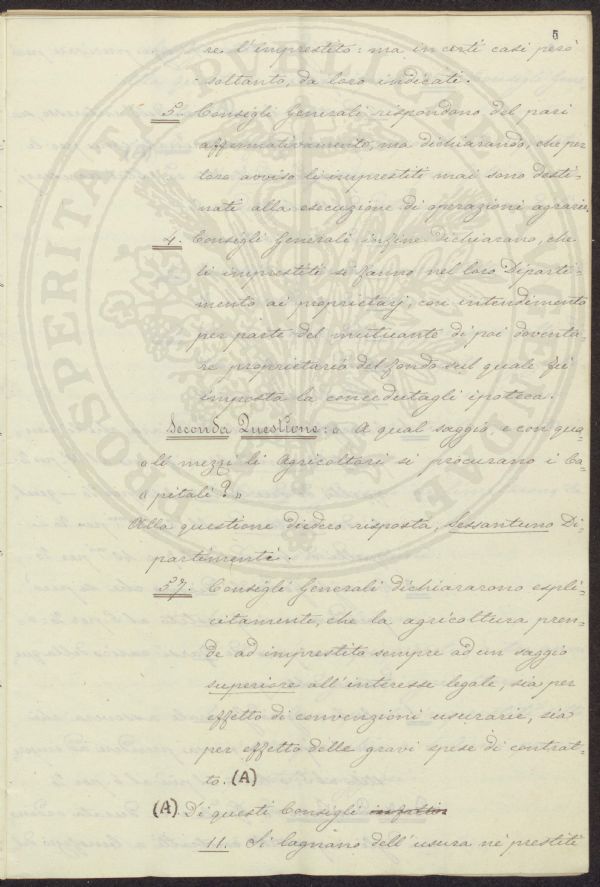 5
re l'imprestito: ma in certi casi però
soltanto, da loro indicati.
5. Consigli Generali rispondono del pari
affirmativamente, ma dichiarando, che per
loro avviso li imprestiti mai sono desti-
nati alla esecuzione di operazioni agrarie.
4. Consigli Generali infine dichiarano, che
li imprestiti si fanno nel loro Diparti-
mento ai proprietarj, con intendimento
per parte del mutuante di poi doventa-
re proprietario del fondo sul quale fu
imposta la concedutagli ipoteca.
Seconda Questione: « A qual saggio, e con qua-
« li mezzi li Agricoltori si procurano i Ca-
« pitali? »
Alla questione diedero risposta, sessantuno Di-
partimenti.
57. Consigli Generali dichiararono espli-
citamente, che la agricoltura pren-
de ad imprestito sempre ad un saggio
superiore all'interesse legale, sia per
effetto di convenzioni usurarie, sia
per effetto delle gravi spese di contrat-
to. (A)
(A) Di questi Consigli
11. Si lagnano dell'usura nè prestiti
PROSPERITATI PUBLICAE